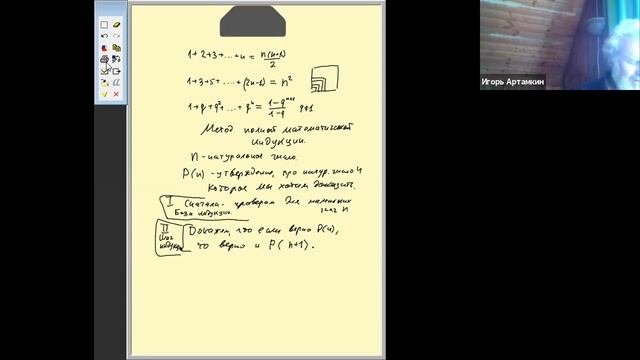 1+2+3+...+n = n(n+1)/2
1+3+5+...+(2n-1) = n²
1+q+q²+...+qⁿ = 1-qⁿ⁺¹/1-q q≠1
Метод полной математической
индукции.
n - натуральное число.
P(n) - утверждение, про натур. число n
которое мы хотим доказать.
I Сначала - проверим для маленьких
База индукции. n
II Докажем, что если верно P(n),
Шаг индукции то верно и P(n+1).
Игорь Артамкин